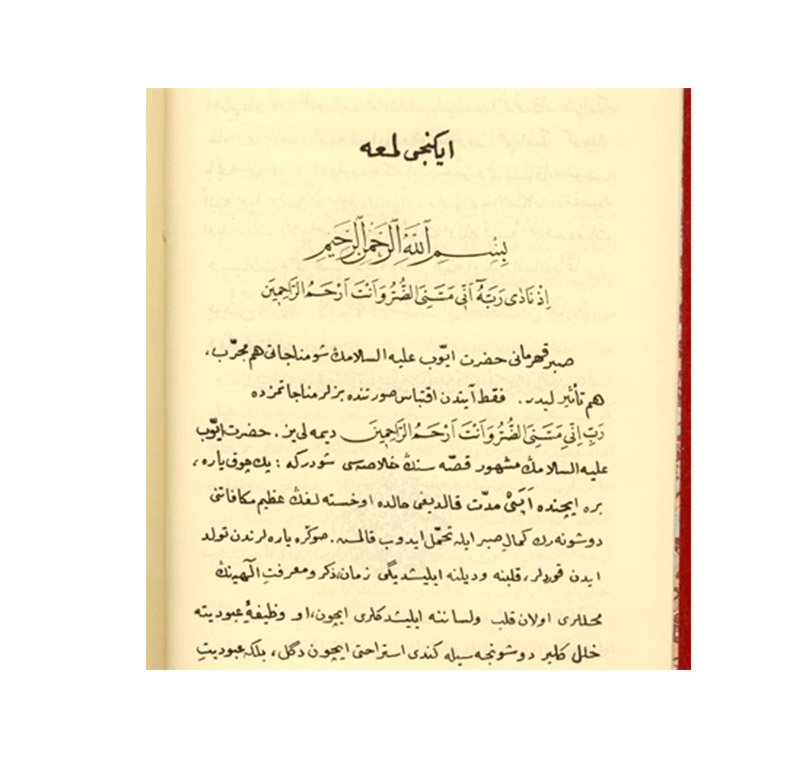 ايكنجى لمعه
بِسْمِ اللّٰهِ الرَّحْمٰنِ الرَّحِيمِ
اِذْ نَادٰى رَبَّهُٓ اَنّٖى مَسَّنِىَ الضُّرُّ وَاَنْتَ اَرْحَمُ الرَّاحِمٖينَ
صبر قهرمانى حضرت ايّوب عليه السلامڭ شو مناجاتى هم مجرّب،
هم تأثيرليدر. فقط آيتدن اقتباس صورتنده بزلر مناجاتمزده
رَبِّ اِنّٖى مَسَّنِىَ الضُّرُّ وَاَنْتَ اَرْحَمُ الرَّاحِمٖينَ ديمه لى يز. حضرت ايّوب
عليه السلامڭ مشهور قصّه سنڭ خلاصه سى شودركه: پك چوق ياره،
بره ايچنده اَپَىْ مدّت قالديغى حالده او خسته لغڭ عظيم مكافاتنى
دوشونه رك كمالِ صبر ايله تحمّل ايدوب قالمش. صوڭره ياره لرندن تولد
ايدن قوردلر، قلبنه و ديلنه ايليشديگى زمان، ذكر و معرفتِ الٓهينڭ
محللرى اولان قلب و لساننه ايليشدكلرى ايچون، او وظيفۀ عبوديته
خلل كلير دوشونجه سيله كندى استراحتى ايچون دگل، بلكه عبوديتِ